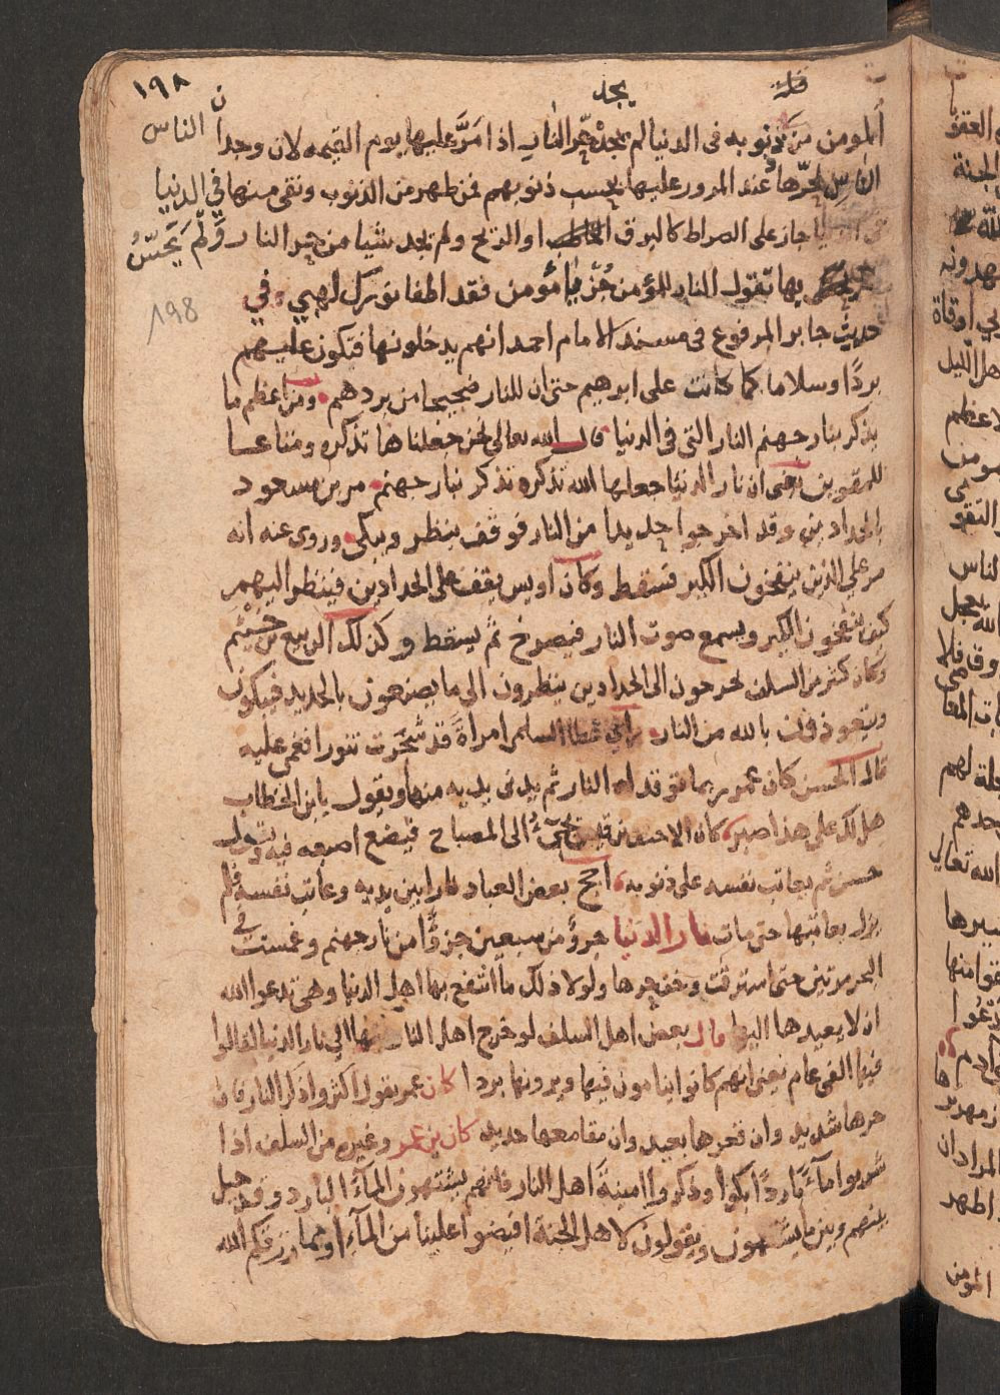 ١٩٨
يجد
المومن من ذنوبه فى الدنيا لم يجد حر النار اذا مرّ عليها يوم القيمه لان وجدان الناس
الناس لحرّها عند المرور عليها بحسب ذنوبهم فمن طهر من الذنوب ونقي منها في الدنيا
جاز على الصراط كالبرق الخاطف او الريح ولم يجد شيا من حر النار ولم يحسّ
بها تقول النار للمؤمن جُز يا مؤمن فقد اطفا نورك لهبي وفي
198
حديث جابر المرفوع فى مسند الامام احمد انهم يدخلونها فتكون عليهم
بردًا وسلاما كما كانت على ابرهيم حتى ان للنار ضجيجا من بردهم ومن اعظم ما
يذكر بنار جهنم النار التى فى الدنيا قال الله تعالى نحن جعلناها تذكره ومتاعا
للمقوين يعنى ان نار الدنيا جعلها الله تذكره تذكر بنار جهنم مر بن مسعود
بالحدادين وقد اخرجوا حديدا من النار فوقف ينظر ويبكي وروى عنه انه
مر على الذين ينفخون الكير فسقط وكان اويس يقف على الحدادين فينظر اليهم
كيف ينفخون الكير ويسمع صوت النار فيصرخ ثم يسقط وكذلك الربيع بن خيثم
وكان كثير من السلف يخرجون الى الحدادين ينظرون الى ما يصنعون بالحديد فيبكون
ويتعوذون بالله من النار راى عطا السلمى امراة قد سجرت تنورا فغمى عليه
قال الحسن كان عمر ربما توقد له النار ثم يدنى يديه منها ويقول يا بن الخطاب
هل لك على هذا صبر كان الاحنف بن قيس يجىءُ الى المصباح فيضع اصبعه فيه ويقول
حس ثم يعاتب نفسه على ذنوبه اجج بعض العباد نارا بين يديه وعاتب نفسه فلم
يزل يعاتبها حتى مات نار الدنيا جزؤ من سبعين جزؤًا من نار جهنم وغمست في
البحر مرتين حتى اشرقت وخف حرها ولولا ذلك ما انتفع بها اهل الدنيا وهى تدعوا الله
ان لا يعيدها اليها قال بعض اهل السلف لو خرج اهل النار منها الى نار الدنيا لقالوا
فيها الفى عام يعنى انهم كانوا يناموزن فيها ويرونها بردا كان عمر يقول اكثروا ذكر النار فان
حرها شديد وان قعرها بعيد وان مقامعها حديد كان بن عمر وغيره من السلف اذا
شربوا مآءً باردًا بكوا وذكروا امينة اهل النار فانهم يشتهون المآء البارد وقد حيل
بينهم وبين ما يشتهون ويقولون لاهل الجنة افيضوا علينا من المآء او مما رزقكم الله